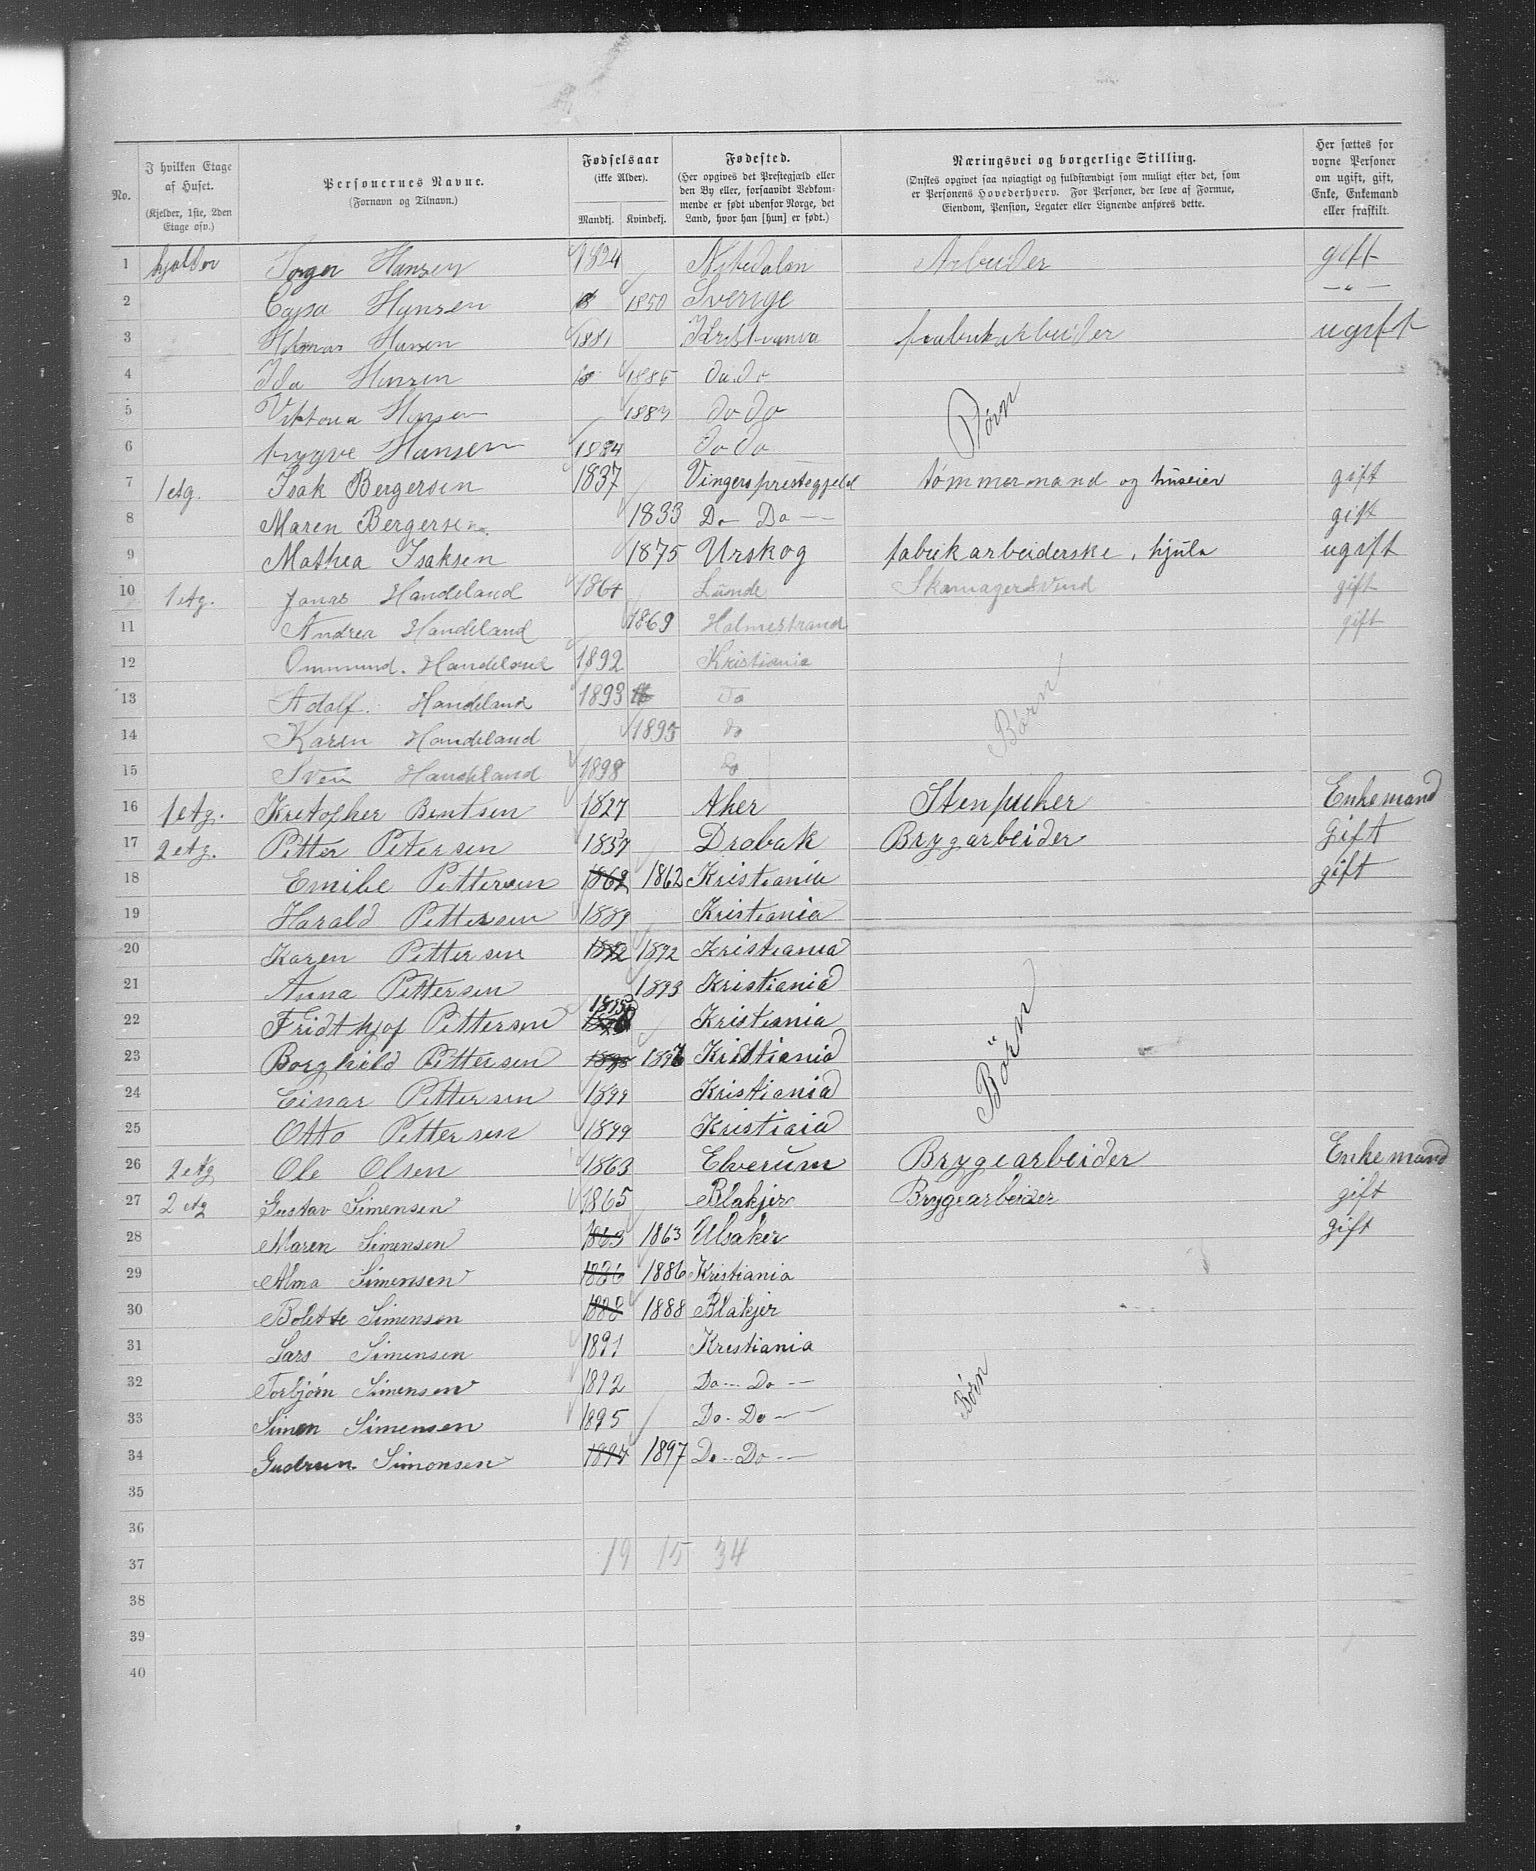 No.
I hvilken Etage af Huset. (Kjelder, 1ste, 2den Etage osv.)
Personernes Navne. (Fornavn og Tilnavn.)
Fødselsaar (ikke Alder). Mandkj. Kvindekj.
Fødested. (Her opgives det Prestegjæld eller den By eller, forsaavidt Vedkommende er født udenfor Norge, det Land, hvor han [hun] er født.)
Næringsvei og borgerlige Stilling. (Ønskes opgivet saa nøiagtigt og fuldstændigt som muligt efter det, som er Personens Hovederhverv. For Personer, der leve af Formue, Eiendom, Pension, Legater eller Lignende anføres dette.)
Her sættes for vorne Personer om ugift, gift, Enke, Enkemand eller fraskilt.
1 kjelder Hansen Nitedalen Arbeider gift
2 Hansen 1850 Sverige — " —
3 Hansen 1881 Kristiania fabrikarbeider ugift
4 Ida Hansen 1885 do do
5 Viktoria Hansen do do Børn
6 trygve Hansen 1884 do do
7 1 etg. Isak Bergersen 1837 Vingers prestegjeld tømmermand og huseier gift
8 Maren Bergersen 1833 Do Do — gift
9 Mathea Isaksen 1875 Urskog fabrikarbeiderske, hjula ugift
10 1 etg. Jonas Handeland 1864 Lunde Skomagersvend gift
11 Andrea Handeland 1869 Holmestrand gift
12 Ommund. Handeland 1892 Kristiania
13 Adolf. Handeland 1893 Do
14 Karen Handeland 1895 do Børn
15 Sven Handeland 1898 do
16 1 etg. Kristofher Bentsen 1827 Aker Enkemand
17 2 etg. Petter Petersen 1837 Drøbak Brygarbeider gift
18 Emilie Pettersen 1862 1862 Kristiania gift
19 Harald Pettersen 1889 Kristiania
20 Karen Pettersen 1892 1892 Kristiania
21 Anna Pettersen 1893 Kristiania
22 Fridthjof Pettersen 1895 Kristiania
23 Borghild Pettersen 1897 Kristiania Børn
24 Einar Pettersen 1899 Kristiania
25 Otto Pettersen 1899 Kristiaia
26 2 etg Ole Olsen 1863 Elverum Brygearbeider Enkemand
27 2 etg Gustav Simensen 1865 Blakjer Brygearbeider gift
28 Maren Simensen 1863 1863 Ulsaker gift
29 Alma Simensen 1886 1886 Kristiania
30 Bolette Simensen 1888 1888 Blakjer
31 Lars Simensen 1891 Kristiania
32 Torbjørn Simensen 1892 Do — Do — Børn
33 Simen Simensen 1895 Do. Do —
34 Gudrun Simonsen 1897 1897 Do — Do —
35
36
37 19 15 34
38
39
40